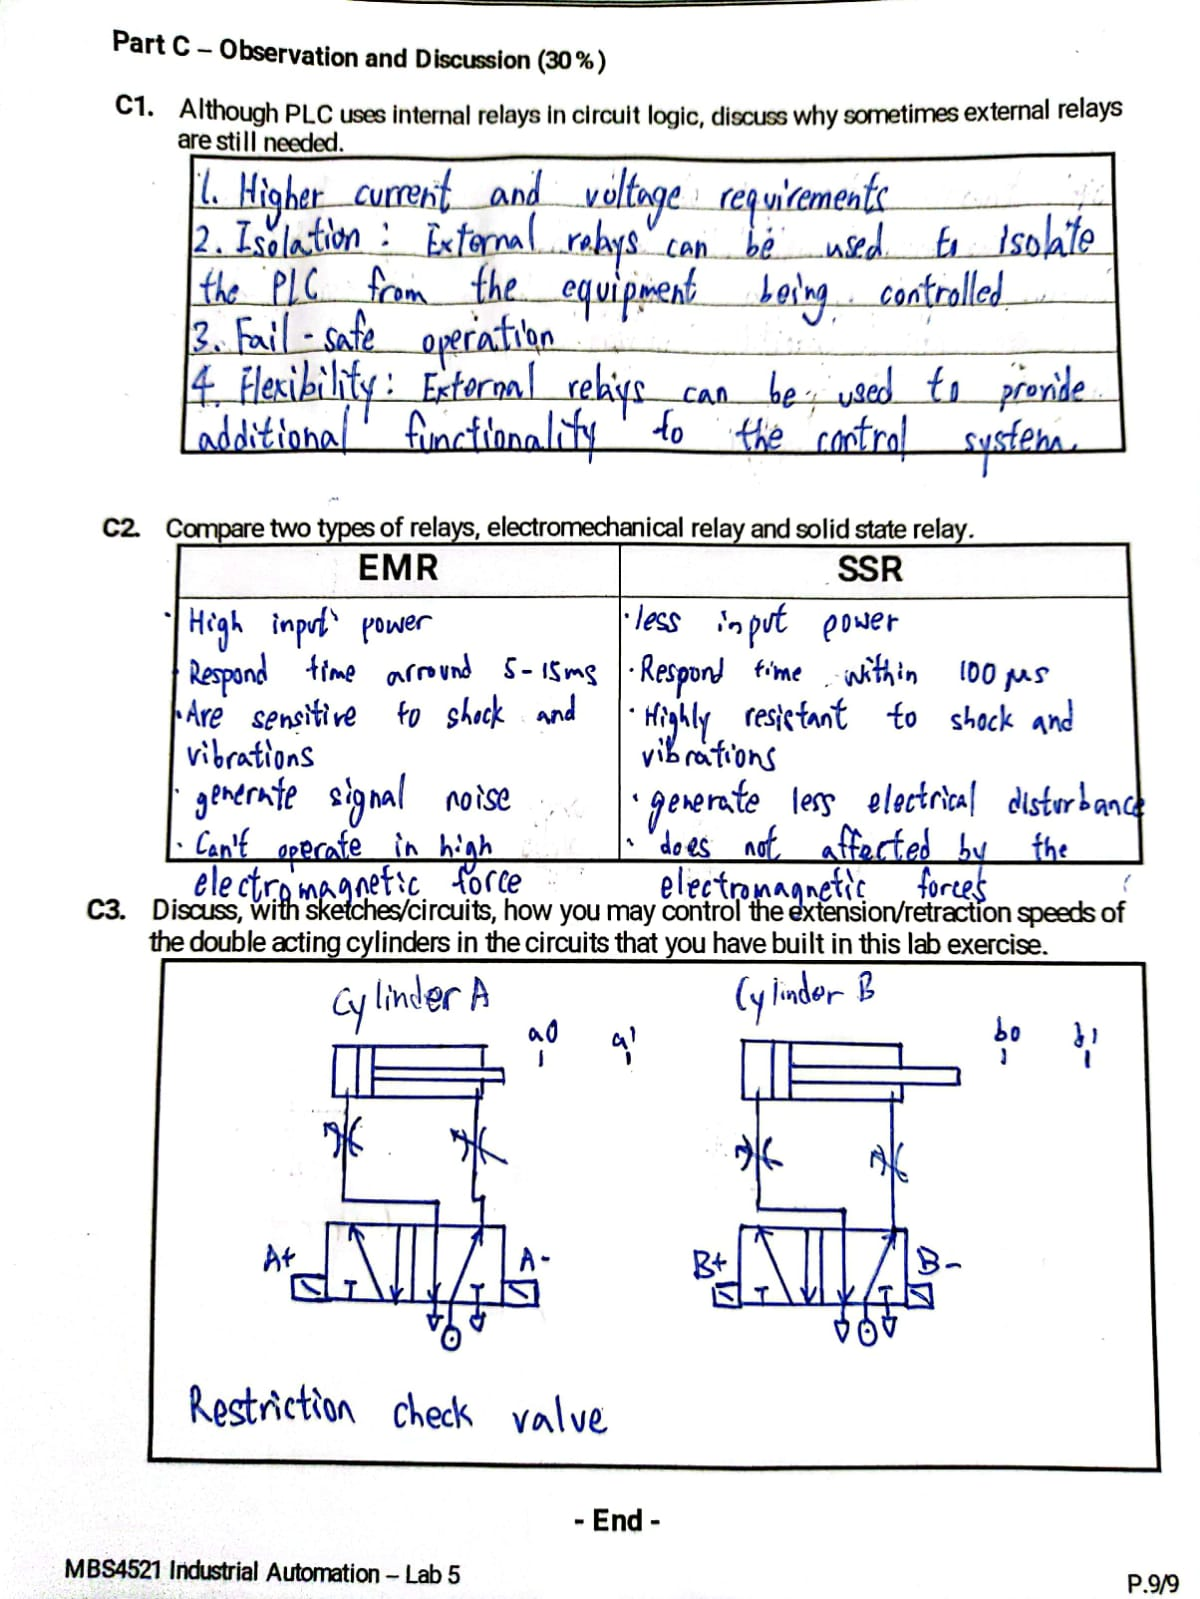 Part C – Observation and Discussion (30%)
C1. Although PLC uses internal relays in circuit logic, discuss why sometimes external relays
are still needed.
1. Higher current and voltage requirements
2. Isolation : External relays can be used to isolate
the PLC from the equipment being controlled
3. Fail-safe operation
4. Flexibility : External relays can be used to provide
additional functionality to the control system.
C2. Compare two types of relays, electromechanical relay and solid state relay.
EMR SSR
· High input power · less input power
· Respond time arround 5-15ms · Respond time within 100 µs
· Are sensitive to shock and · Highly resistant to shock and
vibrations vibrations
· generate signal noise · generate less electrical disturbance
· Can't operate in high · does not affected by the
electromagnetic force electromagnetic forces
C3. Discuss, with sketches/circuits, how you may control the extension/retraction speeds of
the double acting cylinders in the circuits that you have built in this lab exercise.
Cylinder A Cylinder B
a0 a1 b0 b1
A+ A- B+ B-
Restriction check value
- End -
MBS4521 Industrial Automation – Lab 5
P.9/9